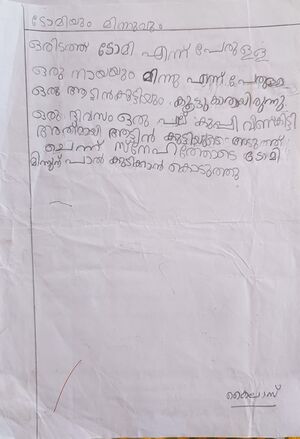 ടോമിയും മിന്നുവും
ഒരിടത്ത് ടോമി എന്ന് പേരുള്ള
ഒരു നായയും മിന്നു എന്ന് പേരുള്ള
ഒരു ആട്ടിൻകുട്ടിയും കൂട്ടുകാരായിരുന്നു
ഒരു ദിവസം ഒരു പാല് കുപ്പി വീണുകിട്ടി
അതുമായി ആട്ടിൻ കുട്ടിയുടെ അടുത്ത്
ചെന്ന് സ്നേഹത്തോടെ ടോമി
മിന്നുന് പാൽ കുടിക്കാൻ കൊടുത്തു
കൈലാസ്